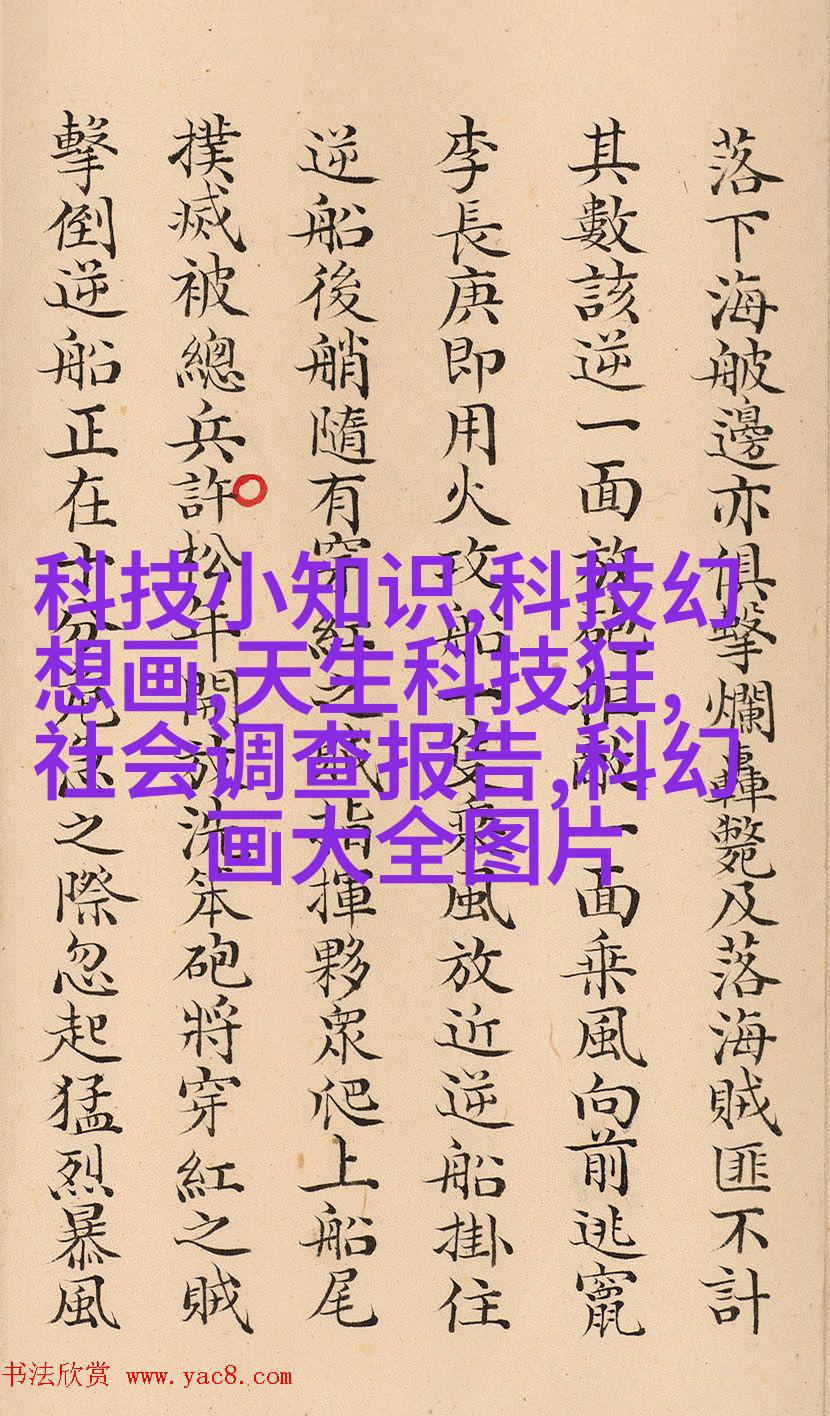 落下海邊亦俱擊爛轟斃及落海賊匪不計
其數該逆一面放砲拒敵一面乘風向前逃竄
李長庚即用火攻船一隻乘風放近逆船掛住
逆船後艄隨有穿紅之賊指揮夥眾爬上船尾
撲滅被總兵許松年開放洗笨砲將穿紅之賊
擊倒逆船正在十分危急之際忽起猛烈暴風
科技小知识,科技幻
想画,天生科技狂,
社会调查报告,科幻
画大全图片
书法欣赏 www.yac8.com